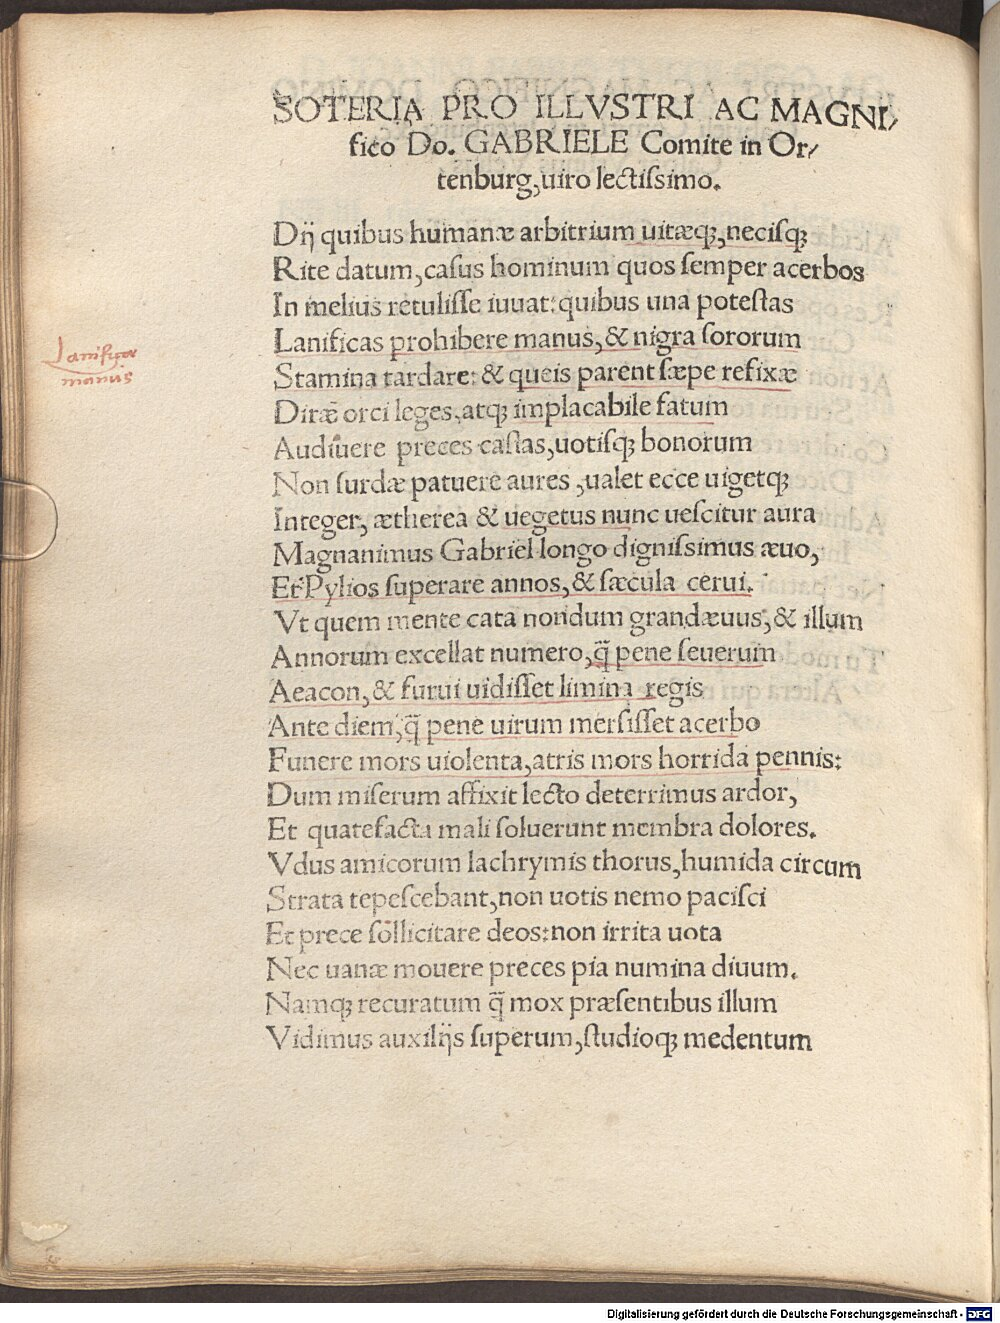 SOTERIA PRO ILLVSTRI AC MAGNI⸗
fico Do. GABRIELE Comite in Or⸗
tenburg, uiro lectiſsimo.
Dij quibus humanæ arbitrium uitæqꝫ, neciſqꝫ
Rite datum, caſus hominum quos ſemper acerbos
In melius retuliſſe iuuat: quibus una poteſtas
Lanificas prohibere manus, & nigra ſororum
Lanificae
manus
Stamina tardare: & queis parent ſæpe refixæ
Diræ orci leges, atqꝫ implacabile fatum
Audiuere preces caſtas, uotiſqꝫ bonorum
Non ſurdæ patuere aures, ualet ecce uigetqꝫ
Integer, ætherea & uegetus nunc ueſcitur aura
Magnanimus Gabriel longo digniſsimus æuo,
Et Pylios ſuperare annos, & ſæcula cerui.
Vt quem mente cata nondum grandæuus, & illum
Annorum excellat numero, q̃ pene ſeuerum
Aeacon, & furui uidiſſet limina regis
Ante diem, q̃ pene uirum merſiſſet acerbo
Funere mors uiolenta, atris mors horrida pennis:
Dum miſerum affixit lecto deterrimus ardor,
Et quatefacta mali ſoluerunt membra dolores.
Vdus amicorum lachrymis thorus, humida circum
Strata tepeſcebant, non uotis nemo paciſci
Et prece ſollicitare deos: non irrita uota
Nec uanæ mouere preces pia numina diuum.
Namqꝫ recuratum q̃ mox præſentibus illum
Vidimus auxilijs ſuperum, ſtudioqꝫ medentum
Digitalisierung gefördert durch die Deutsche Forschungsgemeinschaft - DFG